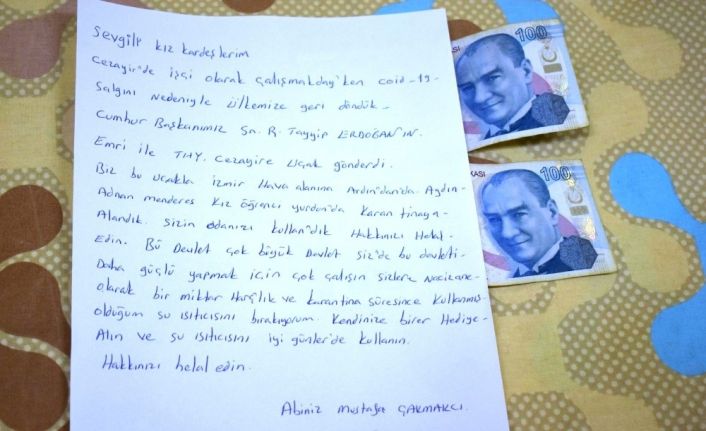 Sevgili kız kardeşlerim
100
KASI
Cezayir'de işçi olarak çalışmakday'ken coid-19-
Salgını nedeniyle ülkemize geri döndük-
Cumhur Başkanımız Sn. R. Tayyip ERDOĞAN'IN.
Emri ile THY. Cezayire uçak gönderdi.
Biz bu uçakla izmir Hava alanına Ardın'dan'da Aydın-
100
KASI
Adnan menderes Kız öğrenci yurdun'da Karan tinaya-
Alandık. Sizin odanızı kullan'dık Hakkınızı Helal-
Edin. Bu Devlet çok büyük Davlet siz'de bu davleti-
Daha güçlü yapmak için çok çalışın sizlere Nacizane-
olarak bir miktar Harçlık ve karantina süresince kullanmış-
olduğum su ısıtıcısını bırakıyorum. Kendinize birer Hediye-
Alın ve su ısıtıcısını iyi günler'de kullanın.
Hakkınızı helal edin.
Abiniz Mustafa ÇAKMAKCI.